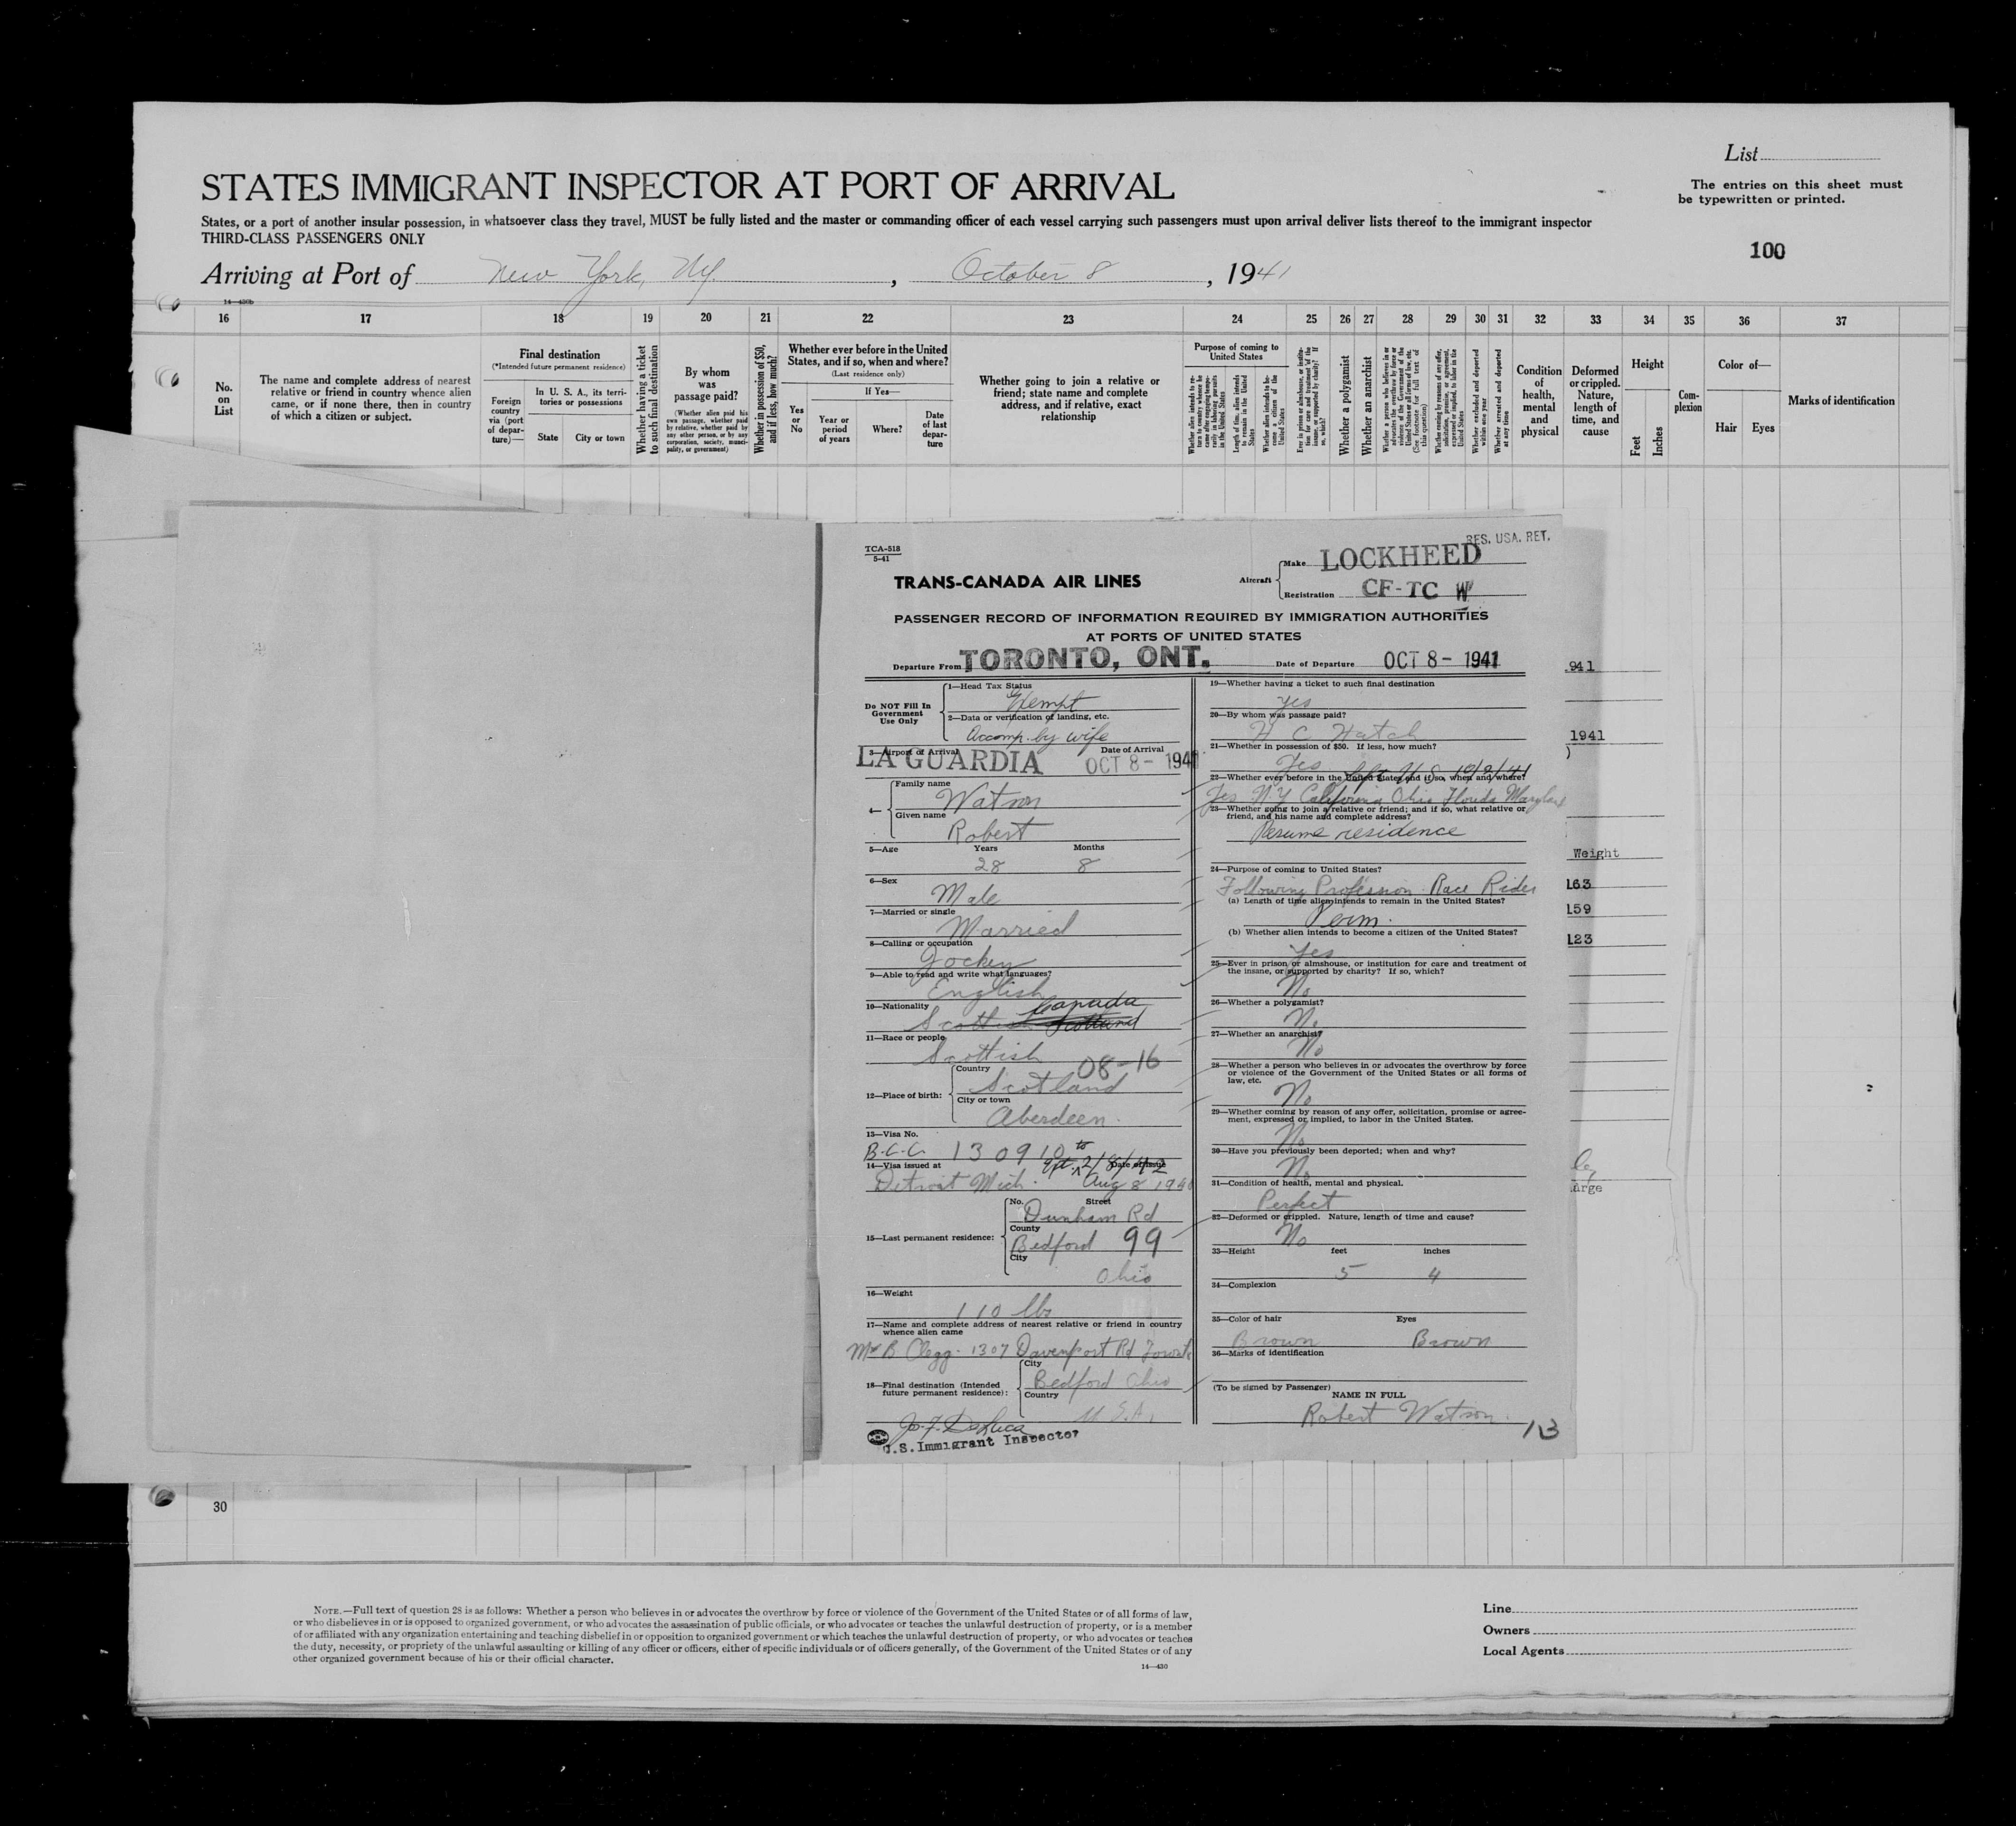 List
STATES IMMIGRANT INSPECTOR AT PORT OF ARRIVAL
The entries on this sheet must
be typewritten or printed.
States, or a port of another insular possession, in whatsoever class they travel, MUST be fully listed and the master or commanding officer of each vessel carrying such passengers must upon arrival deliver lists thereof to the immigrant inspector
THIRD-CLASS PASSENGERS ONLY
100
Arriving at Port of New York, NY. , October 8 , 1941
14—430b
16 17 18 19 20 21 22 23 24 25 26 27 28 29 30 31 32 33 34 35 36 37
No.
on
List
The name and complete address of nearest
relative or friend in country whence alien
came, or if none there, then in country
of which a citizen or subject.
Final destination
(*Intended future permanent residence)
Foreign
country
via (port
of depar-
ture)—
In U. S. A., its terri-
tories or possessions
State City or town
Whether having a ticket
to such final destination
By whom
was
passage paid?
(Whether alien paid his
own passage, whether paid
by relative, whether paid by
any other person, or by any
corporation, society, munici-
pality, or government)
Whether in possession of $50,
and if less, how much?
Whether ever before in the United
States, and if so, when and where?
(Last residence only)
Yes
or
No
If Yes—
Year or
period
of years
Where?
Date
of last
depar-
ture
Whether going to join a relative or
friend; state name and complete
address, and if relative, exact
relationship
Purpose of coming to
United States
Whether alien intends to re-
turn to country whence he
came after engaging tempo-
rarily in laboring pursuits
in the United States
Length of time alien intends
to remain in the United
States
Whether alien intends to be-
come a citizen of the
United States
Ever in prison or almshouse, or institu-
tion for care and treatment of the
insane, or supported by charity? If
so, which?
Whether a polygamist
Whether an anarchist
Whether a person who believes in or
advocates the overthrow by force or
violence of the Government of the
United States or all forms of law, etc.
(See footnote for full text of
this question)
Whether coming by reason of any offer,
solicitation, promise, or agreement,
expressed or implied, to labor in the
United States
Whether excluded and deported
within one year
Whether arrested and deported
at any time
Condition
of
health,
mental
and
physical
Deformed
or crippled.
Nature,
length of
time, and
cause
Height
Feet
Inches
Com-
plexion
Color of—
Hair Eyes
Marks of identification
TCA-518
5-41
TRANS-CANADA AIR LINES
RES. USA. RET.
Aircraft
Make LOCKHEED
Registration CF-TC W
PASSENGER RECORD OF INFORMATION REQUIRED BY IMMIGRATION AUTHORITIES
AT PORTS OF UNITED STATES
Departure From TORONTO, ONT. Date of Departure OCT 8 - 1941
Do NOT Fill In
Government
Use Only
1—Head Tax Status
Exempt
2—Data or verification of landing, etc.
Accomp. by wife
3—Airport of Arrival Date of Arrival
LA GUARDIA OCT 8 - 1941
4—
Family name
Watson
Given name
Robert
5—Age Years Months
28 8
6—Sex
Male
7—Married or single
Married
8—Calling or occupation
Jockey
9—Able to read and write what languages?
English
10—Nationality Canada
Scottish Scotland
11—Race or people
Scottish 08-16
12—Place of birth:
Country
Scotland
City or town
Aberdeen.
13—Visa No.
B.C.C. 130910
14—Visa issued at Date of issue
to 2/8/42
Detroit Mich. Aug 8 1940
15—Last permanent residence:
No. Street
Dunham Rd
County
Bedford 99
City
Ohio
16—Weight
110 lbs
17—Name and complete address of nearest relative or friend in country
whence alien came
B Clegg - 1307 Davenport Rd Toronto
18—Final destination (Intended
future permanent residence):
City
Bedford Ohio
Country
U.S.A.
Jo. F. DeLuca
U.S. Immigrant Inspector
19—Whether having a ticket to such final destination
Yes
20—By whom was passage paid?
H C Hatch
21—Whether in possession of $50. If less, how much?
Yes
22—Whether ever before in the United States and if so, when and where?
Yes N.Y California Ohio Florida Maryland
23—Whether going to join a relative or friend; and if so, what relative or
friend, and his name and complete address?
Resume residence
24—Purpose of coming to United States?
Following Profession Race Rider
(a) Length of time alien intends to remain in the United States?
Perm.
(b) Whether alien intends to become a citizen of the United States?
Yes
25—Ever in prison or almshouse, or institution for care and treatment of
the insane, or supported by charity? If so, which?
No
26—Whether a polygamist?
No
27—Whether an anarchist?
No
28—Whether a person who believes in or advocates the overthrow by force
or violence of the Government of the United States or all forms of
law, etc.
No
29—Whether coming by reason of any offer, solicitation, promise or agree-
ment, expressed or implied, to labor in the United States.
No
30—Have you previously been deported; when and why?
No
31—Condition of health, mental and physical.
Perfect
32—Deformed or crippled. Nature, length of time and cause?
No
33—Height feet inches
5 4
34—Complexion
35—Color of hair Eyes
Brown Brown
36—Marks of identification
(To be signed by Passenger)
NAME IN FULL
Robert Watson.
13
941
1941
)
Weight
163
159
123
arge
30
NOTE.—Full text of question 28 is as follows: Whether a person who believes in or advocates the overthrow by force or violence of the Government of the United States or of all forms of law,
or who disbelieves in or is opposed to organized government, or who advocates the assassination of public officials, or who advocates or teaches the unlawful destruction of property, or is a member
of or affiliated with any organization entertaining and teaching disbelief in or opposition to organized government or which teaches the unlawful destruction of property, or who advocates or teaches
the duty, necessity, or propriety of the unlawful assaulting or killing of any officer or officers, either of specific individuals or of officers generally, of the Government of the United States or of any
other organized government because of his or their official character.
14—430
Line
Owners
Local Agents